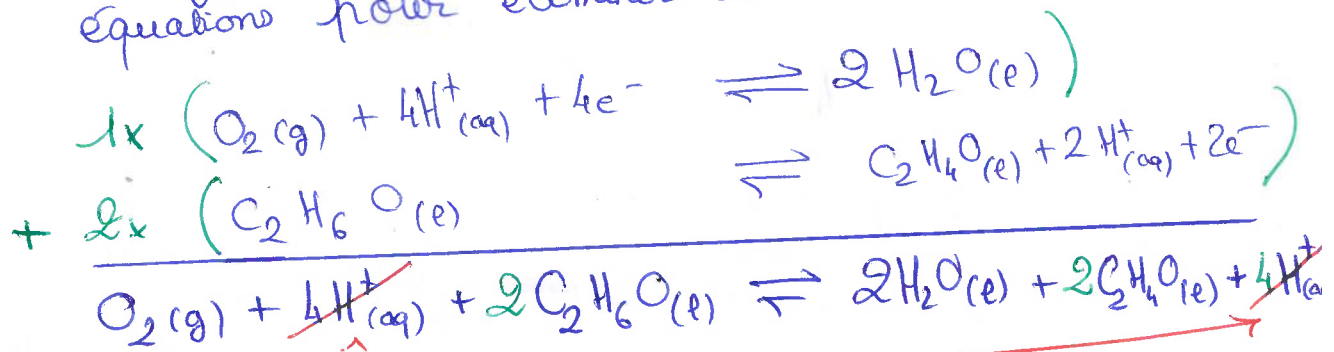 équations pour
1x ( O₂(g) + 4H⁺(aq) + 4e⁻ ⇌ 2 H₂O(l) )
+ 2x ( C₂H₆O(l) ⇌ C₂H₄O(l) + 2H⁺(aq) + 2e⁻ )
O₂(g) + 4H⁺(aq) + 2C₂H₆O(l) ⇌ 2H₂O(l) + 2C₂H₄O(l) + 4H⁺(a